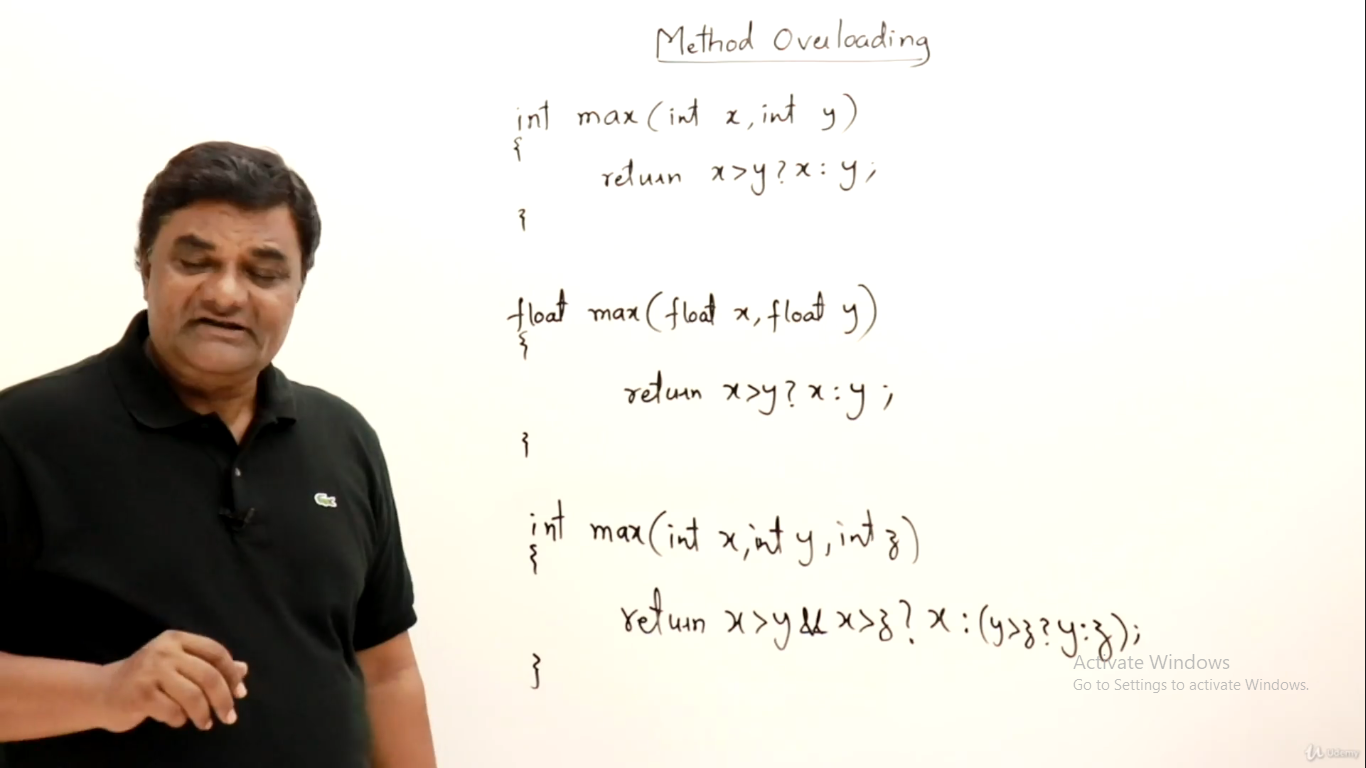 Method Overloading
int max(int x, int y)
{
return x>y?x:y;
}
float max(float x, float y)
{
return x>y?x:y;
}
int max(int x, int y, int z)
{
return x>y && x>z? x:(y>z?y:z);
}
Activate Windows
Go to Settings to activate Windows.
Udemy